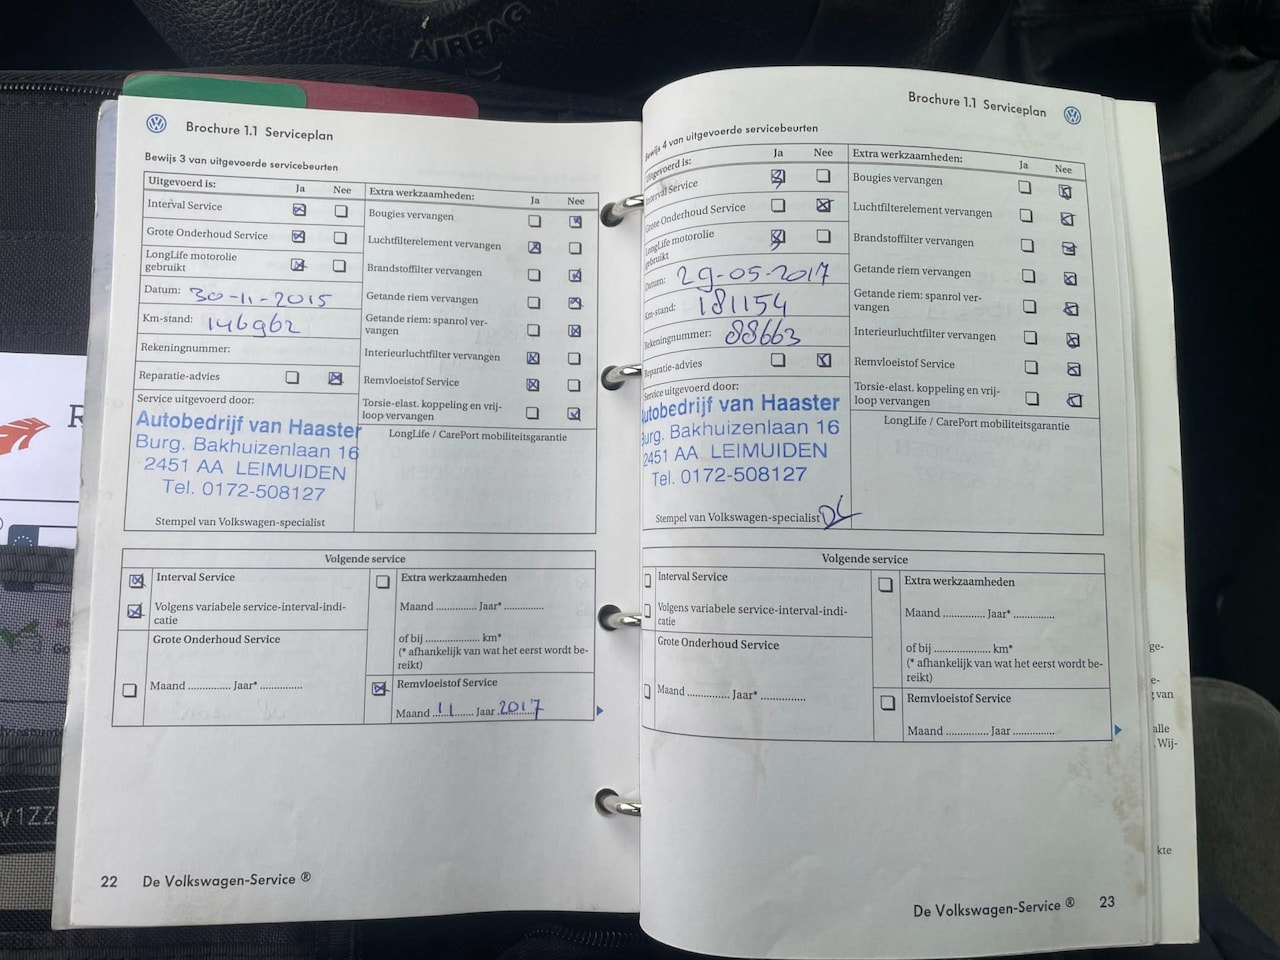 AIRBAG
Brochure 1.1 Serviceplan
Bewijs 3 van uitgevoerde servicebeurten
Uitgevoerd is: Ja Nee
Interval Service
Grote Onderhoud Service
LongLife motorolie
gebruikt
Datum: 30-11-2015
Km-stand: 146962
Rekeningnummer:
Reparatie-advies
Service uitgevoerd door:
Autobedrijf van Haaster
Burg. Bakhuizenlaan 16
2451 AA LEIMUIDEN
Tel. 0172-508127
Stempel van Volkswagen-specialist
Extra werkzaamheden: Ja Nee
Bougies vervangen
Luchtfilterelement vervangen
Brandstoffilter vervangen
Getande riem vervangen
Getande riem: spanrol ver-
vangen
Interieurluchtfilter vervangen
Remvloeistof Service
Torsie-elast. koppeling en vrij-
loop vervangen
LongLife / CarePort mobiliteitsgarantie
Volgende service
Interval Service
Volgens variabele service-interval-indi-
catie
Grote Onderhoud Service
Maand .............. Jaar* ..............
Extra werkzaamheden
Maand .............. Jaar* ..............
of bij ................... km*
(* afhankelijk van wat het eerst wordt be-
reikt)
Remvloeistof Service
Maand 11 Jaar 2017
22 De Volkswagen-Service ®
Brochure 1.1 Serviceplan
Bewijs 4 van uitgevoerde servicebeurten
Uitgevoerd is: Ja Nee
Interval Service
Grote Onderhoud Service
LongLife motorolie
gebruikt
Datum: 29-05-2017
Km-stand: 181154
Rekeningnummer: 88663
Reparatie-advies
Service uitgevoerd door:
utobedrijf van Haaster
Burg. Bakhuizenlaan 16
2451 AA LEIMUIDEN
Tel. 0172-508127
Stempel van Volkswagen-specialist
Extra werkzaamheden: Ja Nee
Bougies vervangen
Luchtfilterelement vervangen
Brandstoffilter vervangen
Getande riem vervangen
Getande riem: spanrol ver-
vangen
Interieurluchtfilter vervangen
Remvloeistof Service
Torsie-elast. koppeling en vrij-
loop vervangen
LongLife / CarePort mobiliteitsgarantie
Volgende service
Interval Service
Volgens variabele service-interval-indi-
catie
Grote Onderhoud Service
Maand .............. Jaar* ..............
Extra werkzaamheden
Maand .............. Jaar* ..............
of bij ................... km*
(* afhankelijk van wat het eerst wordt be-
reikt)
Remvloeistof Service
Maand .............. Jaar ..............
De Volkswagen-Service ® 23
ge-
e-
van
alle
Wij-
kte
V1ZZ